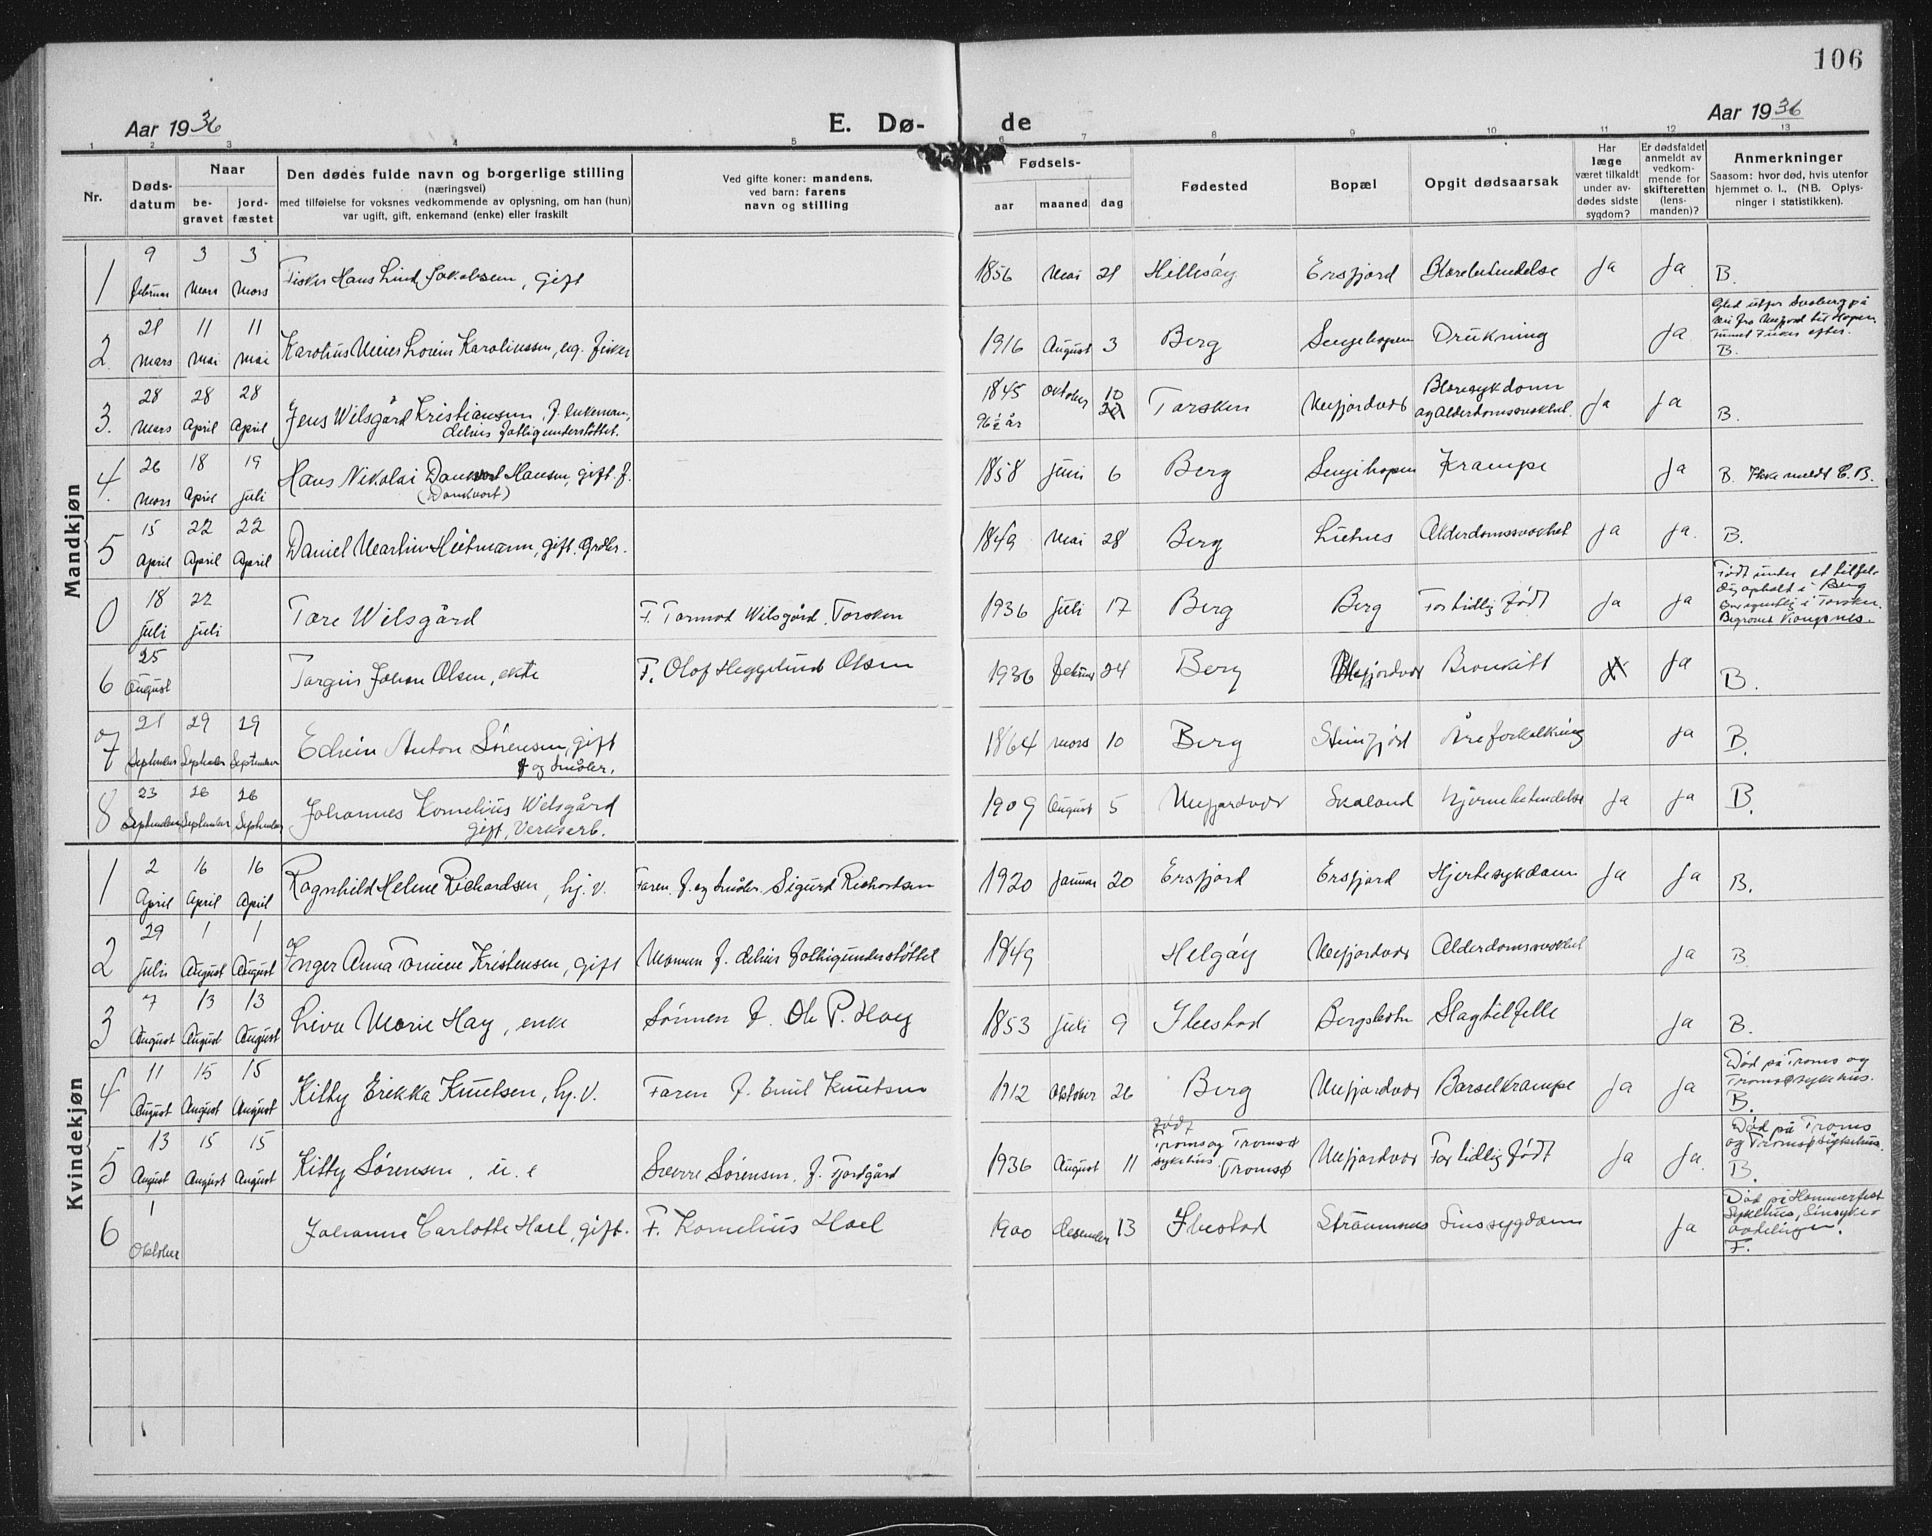 106
Aar 1936 E. Dø- de Aar 1936
1 2 3 4 5 6 7 8 9 10 11 12 13
Nr. Døds-datum Naar be-gravet jord-fæstet Den dødes fulde navn og borgerlige stilling (næringsvei) med tilføielse for voksnes vedkommende av oplysning, om han (hun) var ugift, gift, enkemand (enke) eller fraskilt Ved gifte koner: mandens, ved barn: farens navn og stilling Fødsels- aar maaned dag Fødested Bopæl Opgit dødsaarsak Har læge været tilkaldt under av-dødes sidste sygdom? Er dødsfaldet anmeldt av vedkom-mende for skifteretten (lens-manden)? Anmerkninger Saasom: hvor død, hvis utenfor hjemmet o. l., (NB. Oplys-ninger i statistikken).
Mandkjøn
1 9 februar 3 Mars 3 Mars Fisker Hans Lind Jakobsen, gift 1856 Mai 21 Hillesøy Ersfjord Blærebetendelse Ja Ja B.
2 21 Mars 11 Mai 11 Mai Karolius Meier Lorin Karoliussen, ug. fisker 1916 August 3 Berg Senjehopen Drukning Ja Gled utfor Sneberg på vei fra Mefjord til Hopen. Funnet 7 uker efter. B.
3. 28 Mars 28 April 28 April Jens Wilsgård Kristiansen f. enkeman, delvis fattigunderstøttet. 1845 Oktober 10 96½ år Torsken Mefjordvær Blæresykdom og Alderdomssvakhet. Ja Ja B.
4. 26 Mars 18 April 19 Juli Hans Nikolai Danvort Hansen, gift. f. (Dandvort) 1858 Juni 6 Berg Senjehopen Krampe Ja B. Ikke meldt E. B.
5 15 April 22 April 22 April Daniel Martin Heitmann, gift. Grdbr. 1849 Mai 28 Berg Liehus Alderdomssvakhet Ja Ja. B.
0 18 Juli 22 Juli Tore Wilsgård F. Tormod Wilsgård. Torsken 1936 Juli 17 Berg Berg For tidlig født Ja Ja Født under et tilfel-dig ophold i Berg Bor egentlig i Torsken. Begravet Kongsnes.
6 25 August Torgeir Johan Olsen, ekte F. Olof Heggelund Olsen 1936 februar 24 Berg Mefjordvær Bronkitt Ja B.
7 21 September 29 September 29 September Edvin Anton Sørensen, gift f og småbr. 1864 Mars 10 Berg Steinfjord Åreforkalkning Ja B.
8 23 September 26 September 26 September Johannes Kornelius Wilsgård gift, verksarb. 1909 August 5 Mefjordvær Skaland Hjernebetendelse Ja Ja B.
Kvindekjøn
1 2 April 16 April 16 April Ragnhild Helene Richardsen, hj. v. Faren. f. og småbr. Sigurd Richardsen 1920 Januar 20 Ersfjord Ersfjord Hjertesykdom Ja Ja B.
2 29 Juli 1 August 1 August Inger Anna Tomine Kristensen, gift Mannen f. delvis fattigunderstøttet 1849 Helgøy Mefjordvær Alderdomssvakhet Ja B.
3 7 August 13 August 13 August Liva Marie Hay, enke Sønnen f. Ole P. Hay 1853 Juli 9 Ibestad Bergsbotn Slagtilfelle Ja B.
4 11 August 15 August 15 August Kitty Erikka Knutsen, hj. v. Faren f. Emil Knutsen 1912 Oktober 26 Berg Mefjordvær Barselkrampe Ja Ja Død på Troms og Tromsø sykehus. B.
5 13 August 15 August 15 August Kitty Sørensen, u. e Sverre Sørensen, f. Fjordgård 1936 August 11 Født Troms og Tromsø sykehus Tromsø Mefjordvær For tidlig født Ja Ja. Død på Troms og Tromsø Sykehus. B.
6 1 Oktober Johanne Carlotte Hoel, gift. F. Kornelius Hoel 1900 Desember 13 Ibestad Straumsnes Sinssygdom Ja Død på Hammerfest Sykehus, Sinsyke-avdelingen. F.